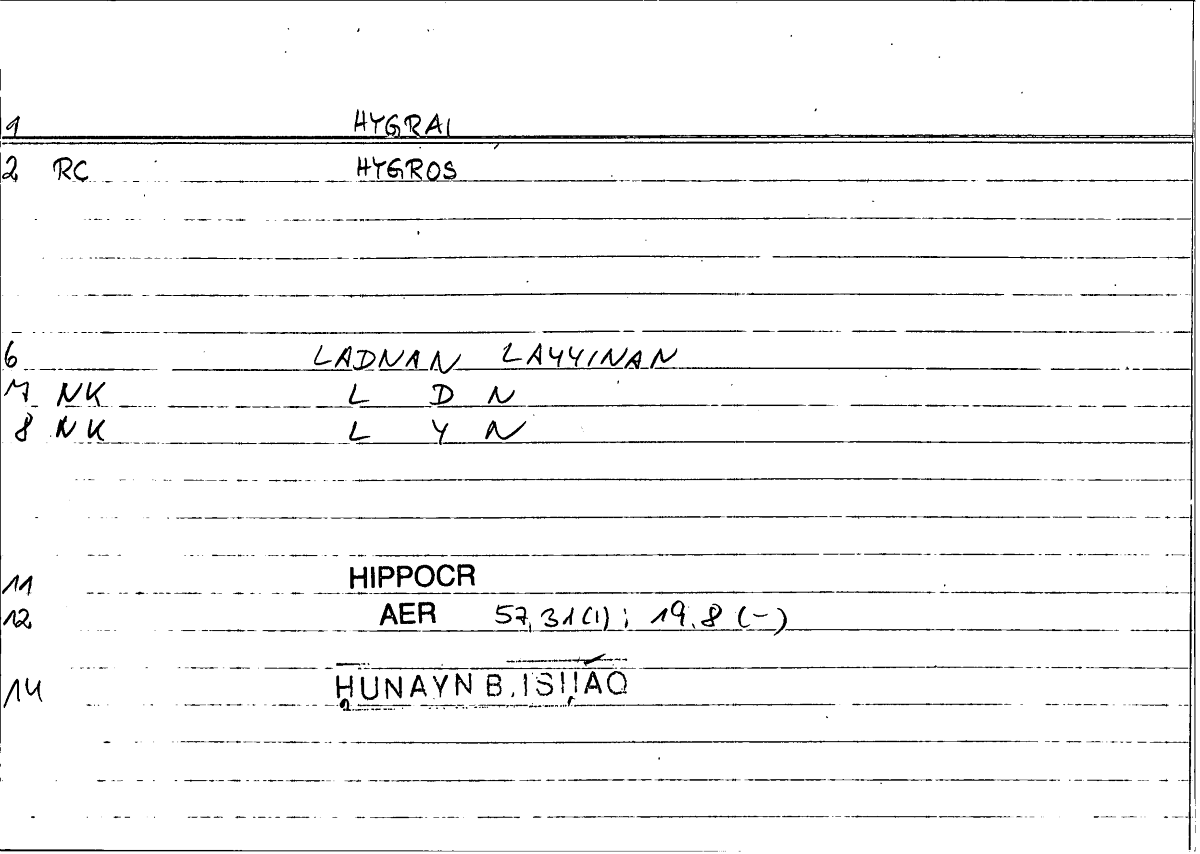 1 HYGRAI
2 RC HYGROS
6 LADNAN LAYYINAN
7 NK L D N
8 NK L Y N
11 HIPPOCR
12 AER 57,31(1); 19.8 (-)
14 ḤUNAYN B. ISḤĀQ